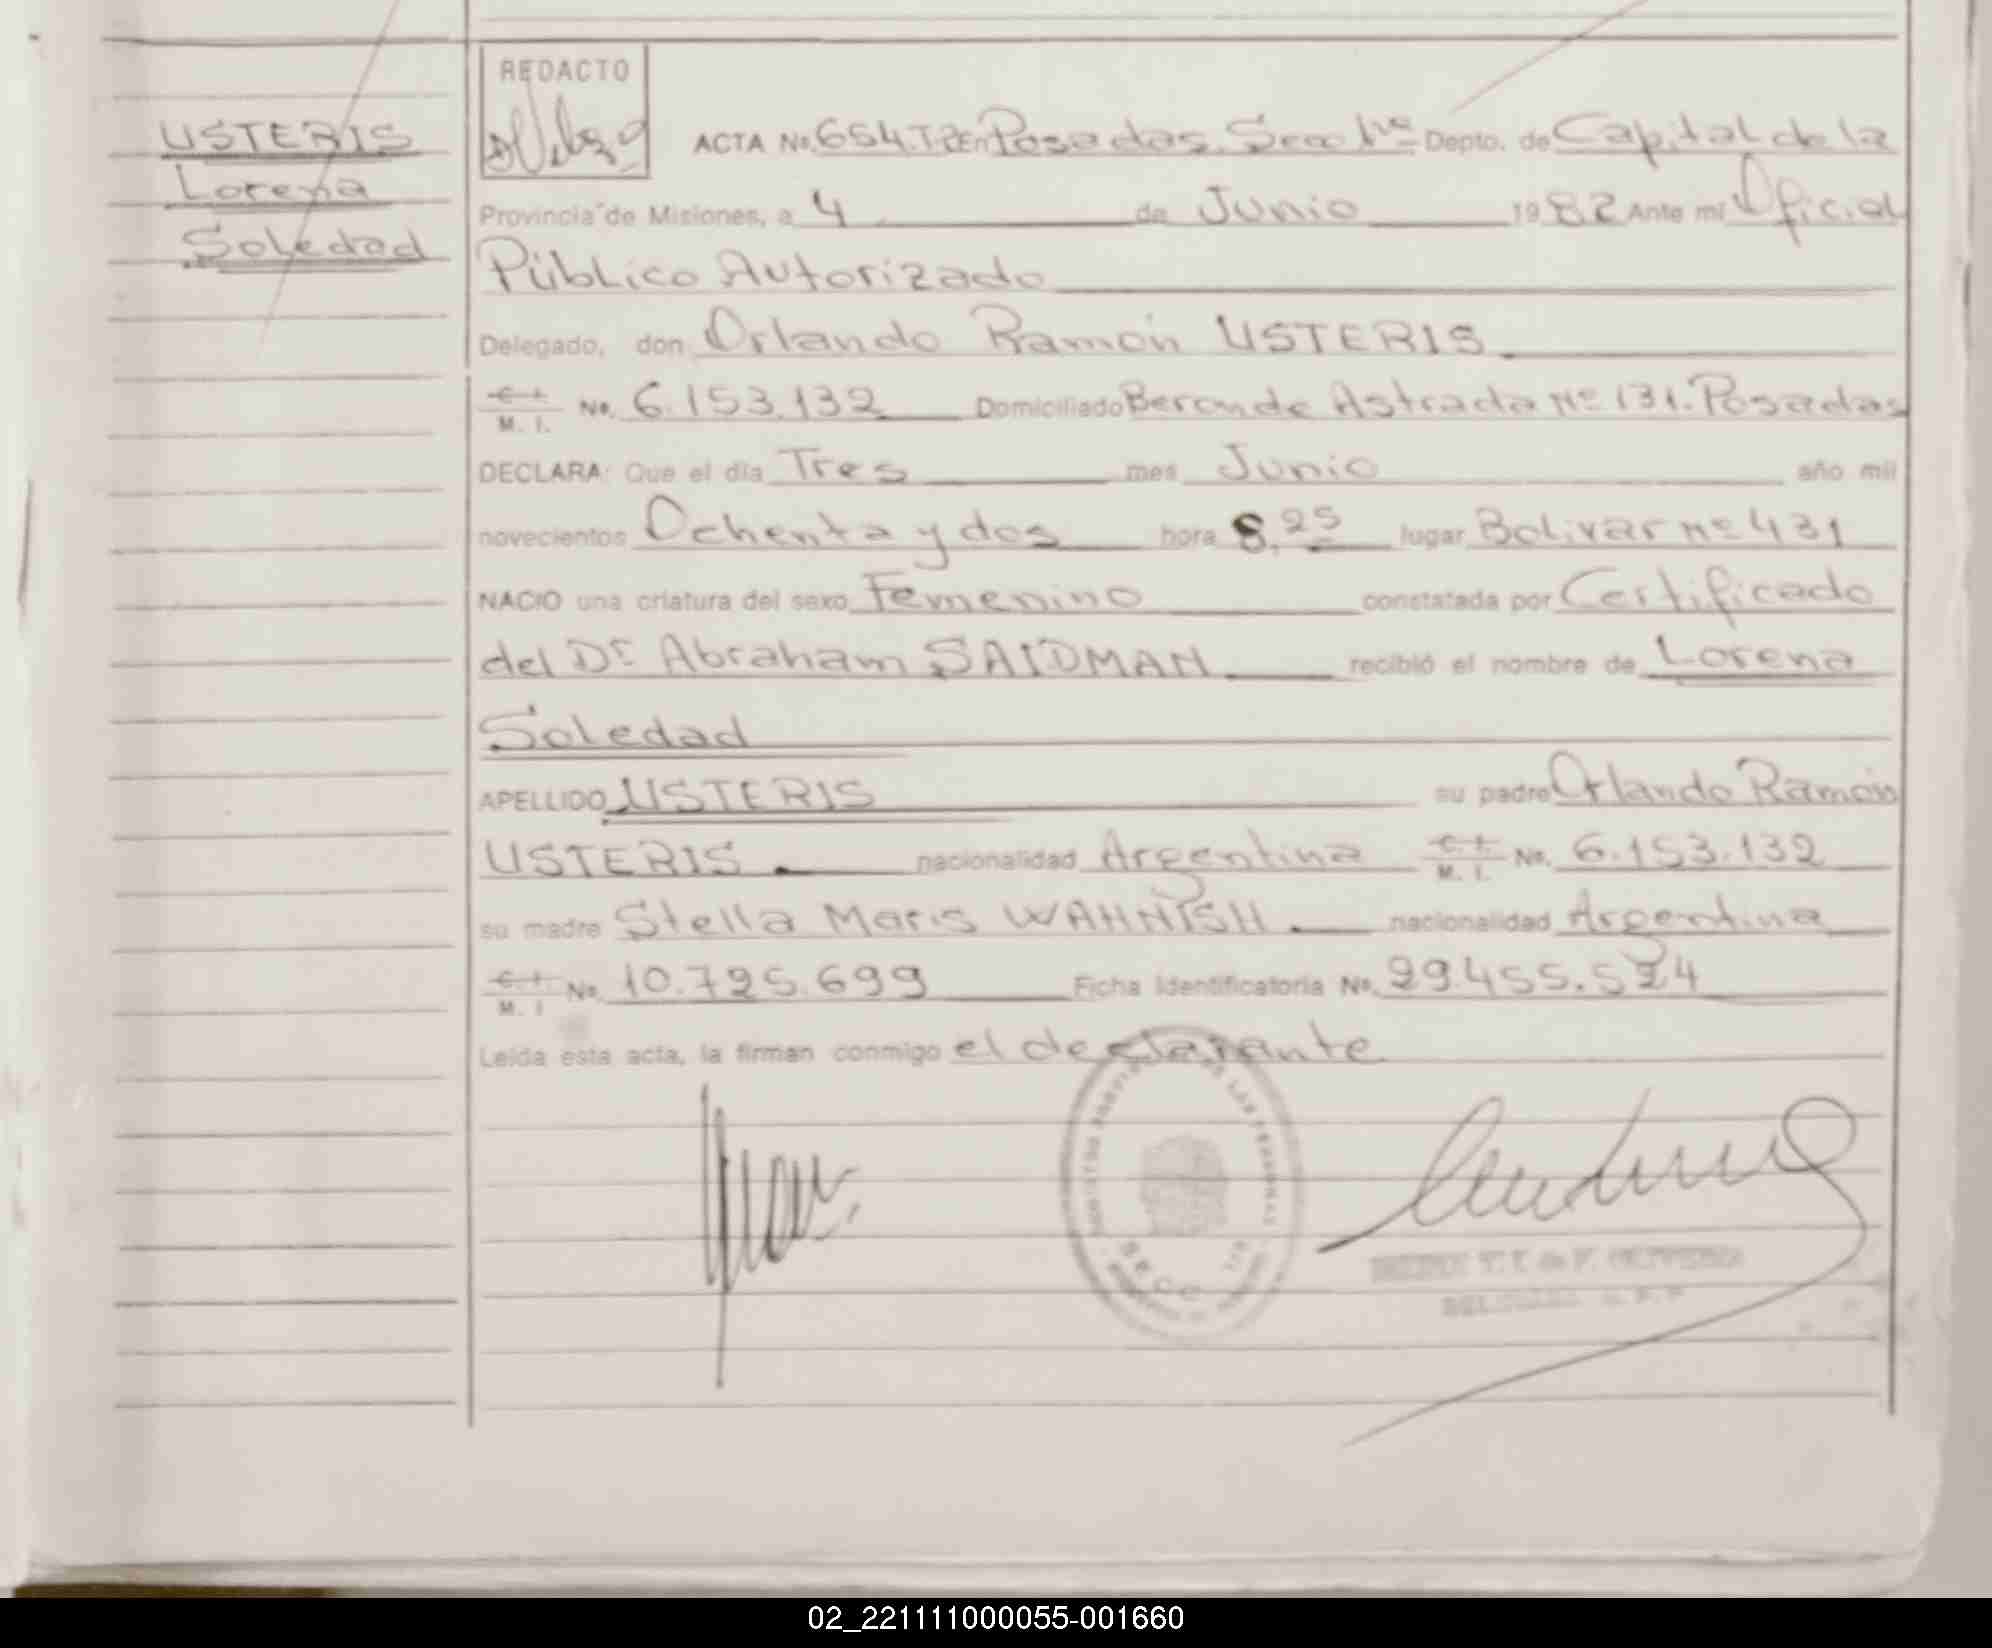 REDACTO
USTERIS
Lorena
Soledad
ACTA No. 654.T2 En Posadas. Secc 1ra Depto. de Capital de la
Provincia de Misiones, a 4 de Junio 1982 Ante mí Oficial
Público Autorizado
Delegado, don Orlando Ramón USTERIS
C. I. M. I. No. 6.153.132 Domiciliado Berón de Astrada Nº 131. Posadas
DECLARA: Que el día Tres mes Junio año mil
novecientos Ochenta y dos hora 8,25 lugar Bolivar nº 431
NACIO una criatura del sexo Femenino constatada por Certificado
del Dr Abraham SAIDMAN recibió el nombre de Lorena
Soledad
APELLIDO USTERIS su padre Orlando Ramón
USTERIS nacionalidad Argentina C. I. M. I. No. 6.153.132
su madre Stella Maris WAHNISH nacionalidad Argentina
C. I. M. I No. 10.725.699 Ficha Identificatoria No. 29.455.524
Leída esta acta, la firman conmigo el declarante
DE LAS PERSONAS
SECC. 1ra
02_221111000055-001660